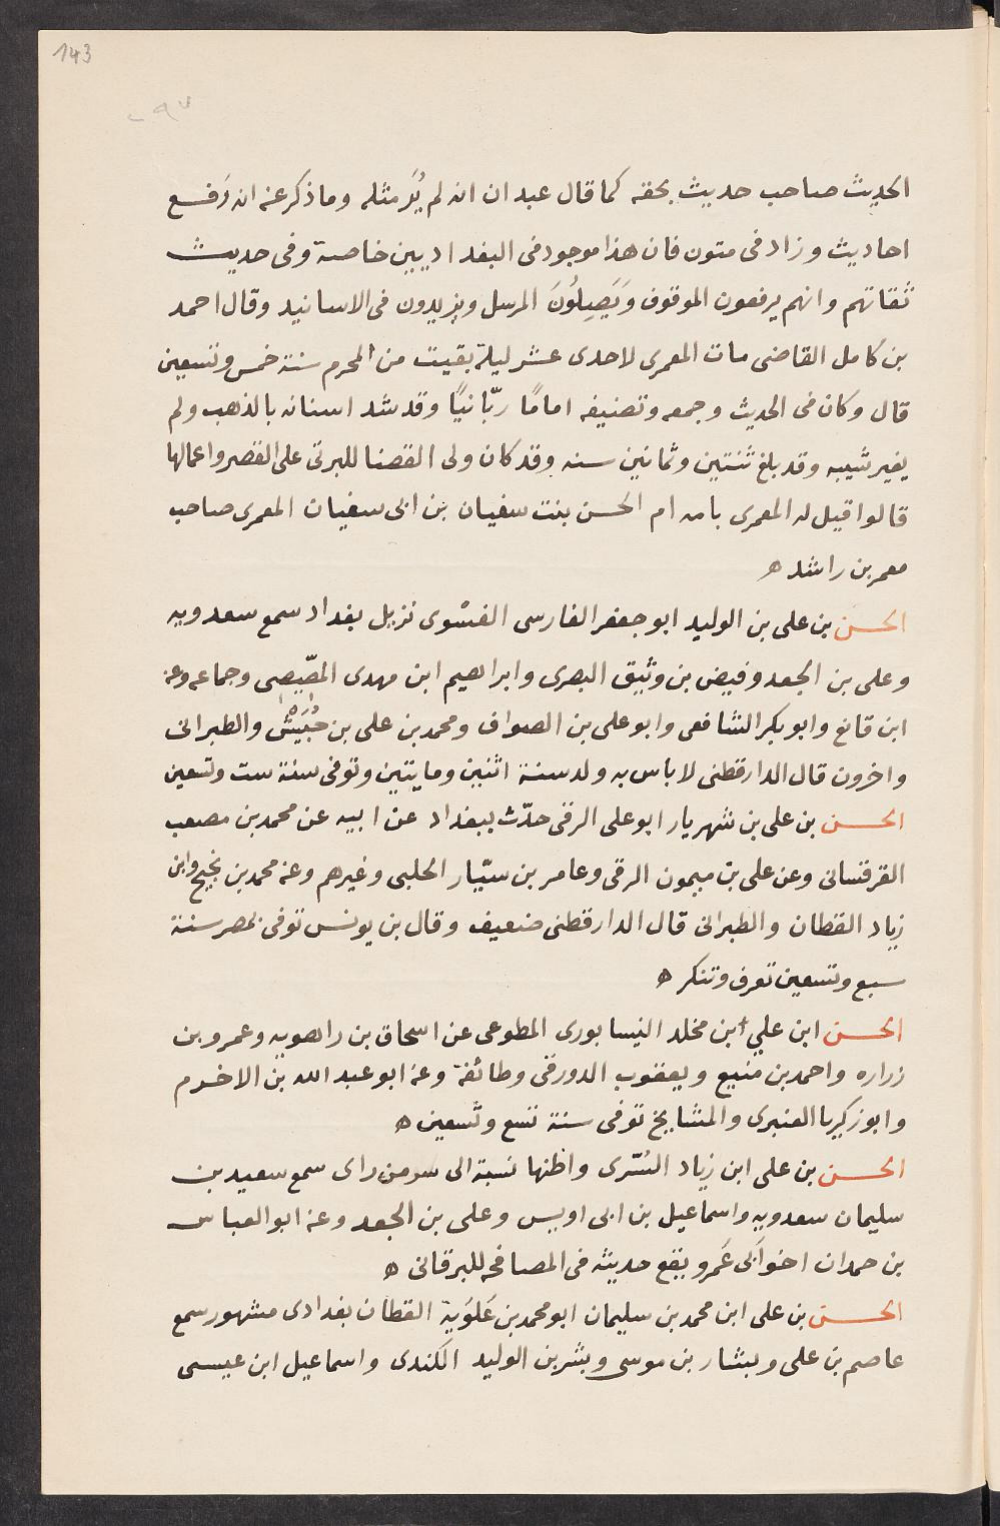 143
الحديث صاحب حديث بحقه كما قال عبدان انه لم يُرَ مثله وما ذكر عنه انه رَفع
احاديث وزاد فى متون فان هذا موجود فى البغداديين خاصة وفى حديث
ثقاتهم وانهم يرفعون الموقوف وَيَصِلُونَ المرسل ويزيدون فى الاسانيد وقال احمد
بن كامل القاضى مات المعمرى لاحدى عشر ليلة بقيت من المحرم سنة خمس وتسعين
قال وكان فى الحديث وجمعه وتصنيفه امامًا ربّانيًا وقد شد اسنانه بالذهب ولم
يغير شيبه وقد بلغ ثنتين وثمانين سنه وقد كان ولى القضا للبرتى على القصر واعمالها
قالوا قيل له المعمرى بامه ام الحسن بنت سفيان بن ابى سفيان المعمرى صاحب
معمر بن راشد ه
الحسن بن على بن الوليد ابو جعفر الفارسى الفسْوى نزيل بغداد سمع سعدويه
وعلى بن الجعد وفيض بن وثيق البصرى وابراهيم ابن مهدى المصّيصى وجماعه وعنه
ابن قانع وابو بكر الشافعى وابو على بن الصواف ومحمد بن على بن حُبَيْش والطبرانى
واخرون قال الدارقطنى لا باس به ولد سنة اثنين ومايتين وتوفى سنة ست وتسعين
الحسن بن على بن شهريار ابو على الرقى حدّث ببغداد عن ابيه عن محمد بن مصعب
القرقسانى وعن على بن ميمون الرقى وعامر بن سيّار الحلبى وغيرهم وعنه محمد بن نجيح وابن
زياد القطان والطبرانى قال الدارقطنى ضعيف وقال بن يونس توفى بمصر سنة
سبع وتسعين تعرف وتنكر ه
الحسن ابن علي ابن مخلد النيسابورى المطوعى عن اسحاق بن راهويه وعمرو بن
زراره واحمد بن منيع ويعقوب الدورقى وطائفة وعنه ابو عبد الله بن الاخرم
وابو زكيريا العنبرى والمشايخ توفى سنة تسع وتسعين ه
الحسن بن على ابن زياد السُرّى واظنها نسبة الى سر من راى سمع سعيد بن
سليمان سعدويه واسماعيل بن ابى اويس وعلى بن الجعد وعنه ابو العباس
بن حمدان اخو اَبى عَمرو يقع حديثه فى المصافحه للبرقانى ه
الحسن بن على ابن محمد بن سليمان ابو محمد بن عَلوَيهْ القطان بغدادى مشهور سمع
عاصم بن على وبشار بن موسى وبشر بن الوليد الكندى واسماعيل ابن عيسى